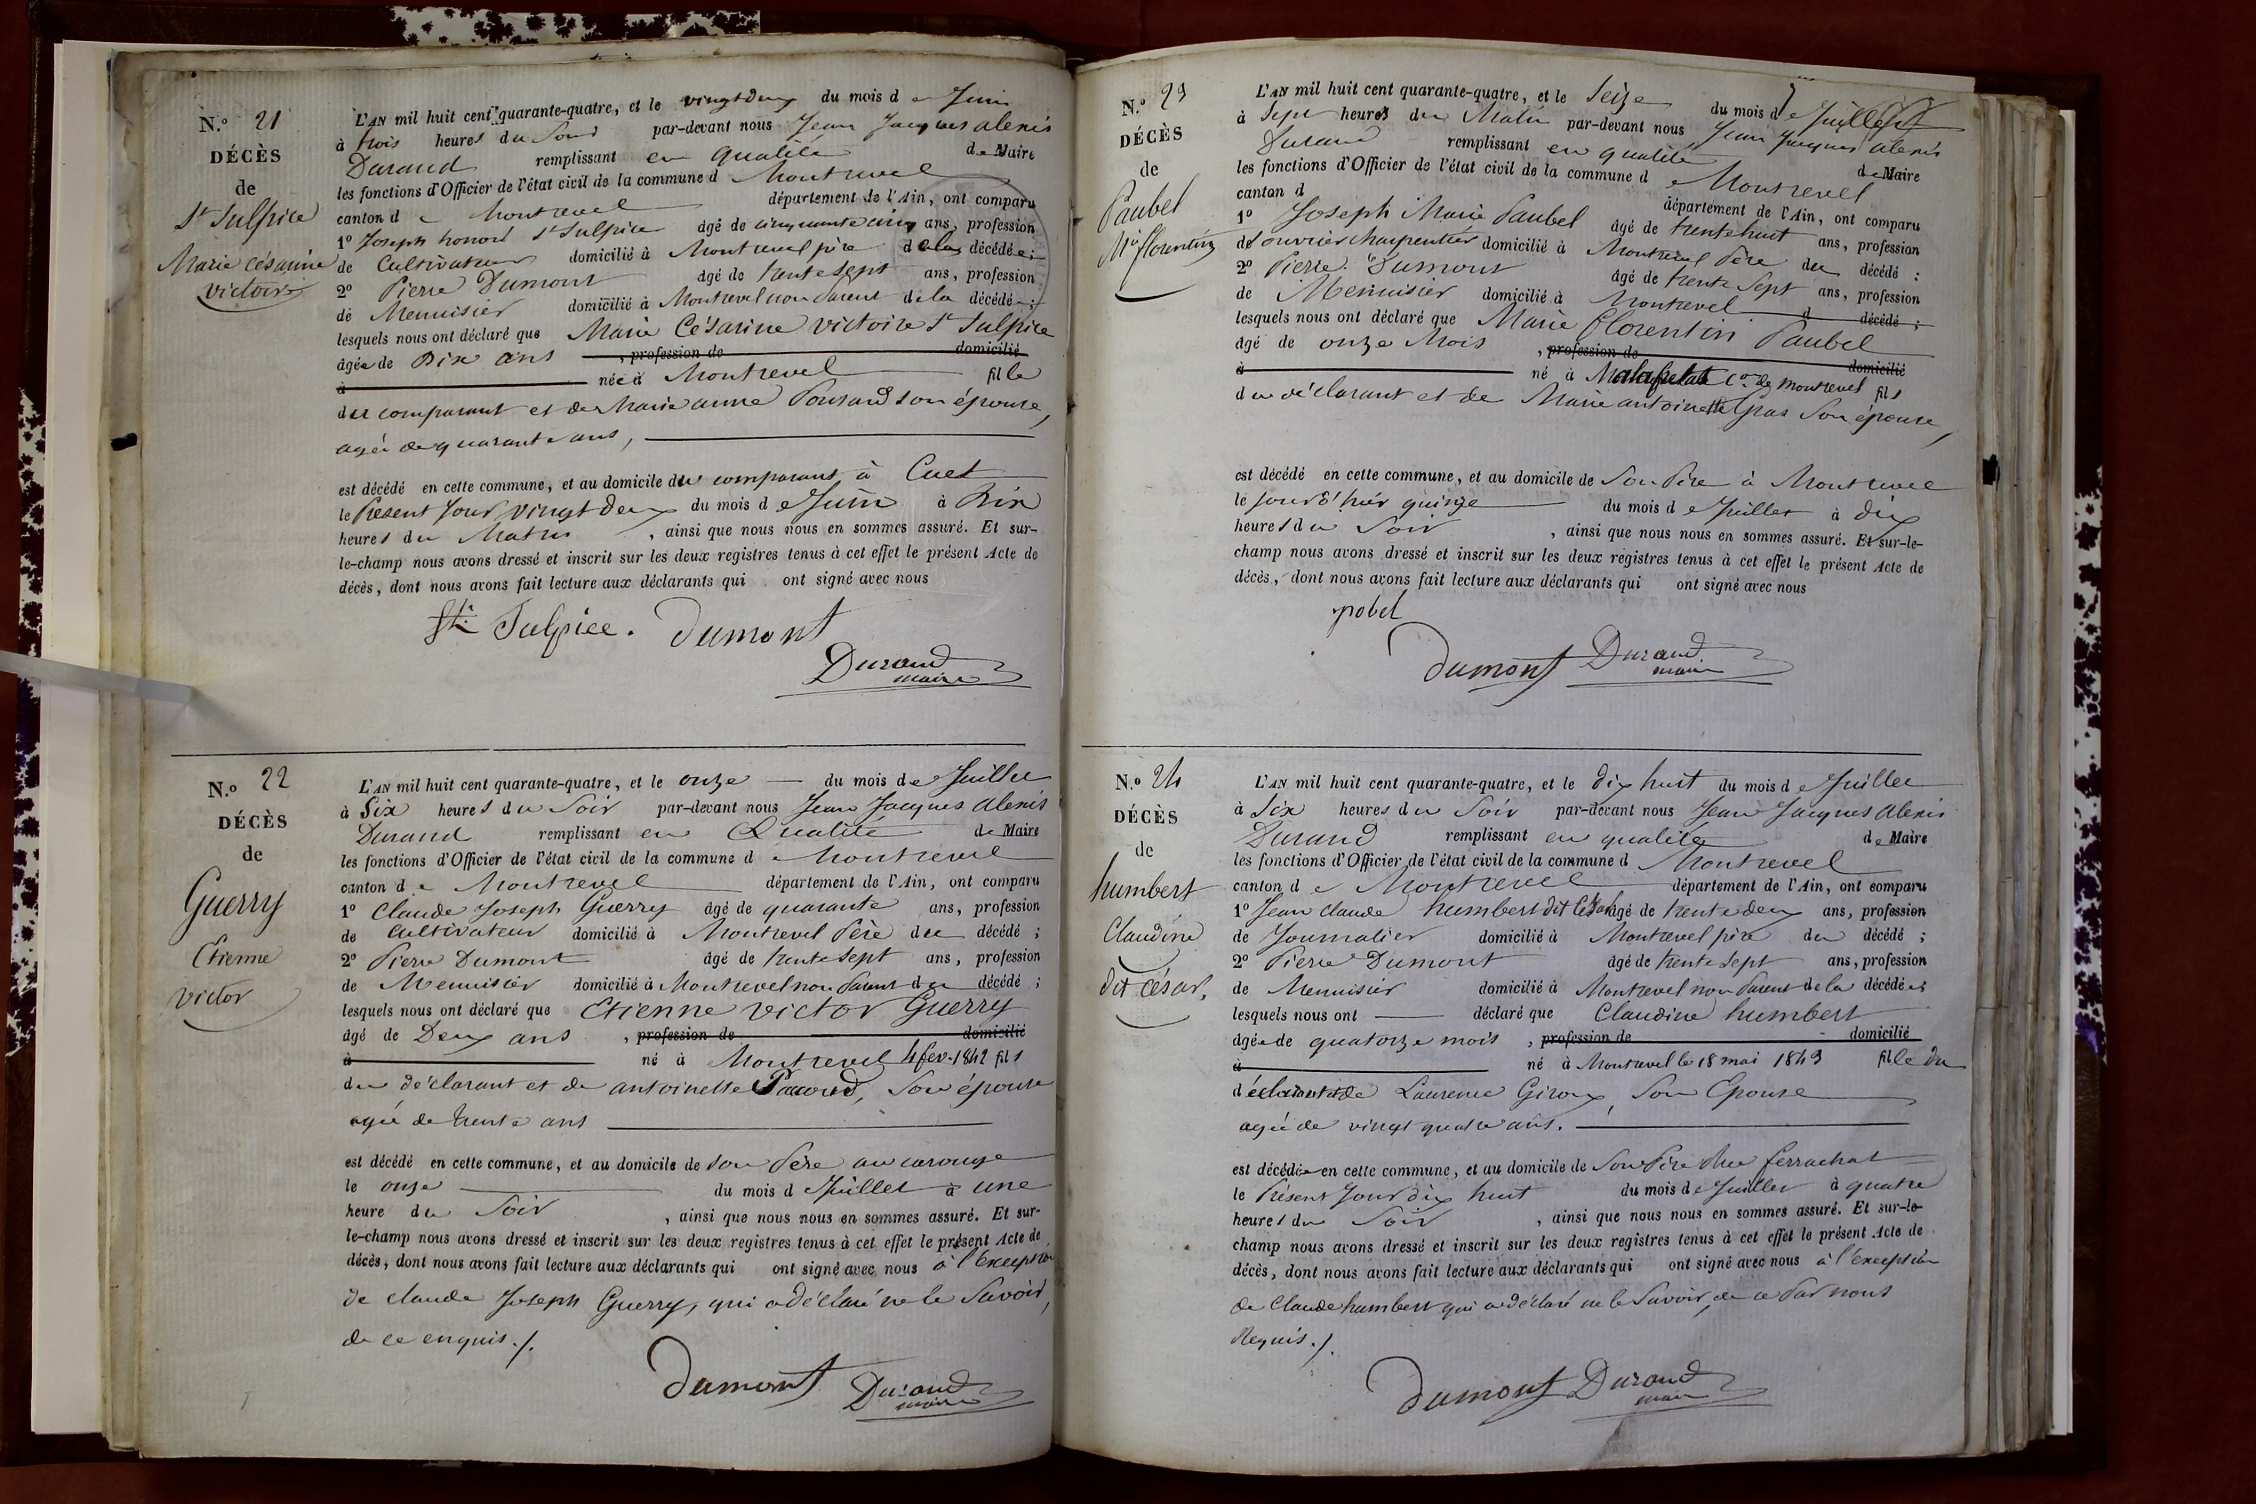 N.º 21
DÉCÈS
de
St Sulpice
Marie césarine
victoire
L'AN mil huit cent quarante-quatre, et le vingt deux du mois de Juin
à trois heures du Soir par-devant nous Jean Jacques alexis
Durand remplissant en qualité de Maire
les fonctions d'Officier de l'état civil de la commune d Montrevel
canton de Montrevel département de l'Ain, ont comparu
1º Joseph honoré St Sulpice âgé de cinquante cinq ans, profession
de Cultivateur domicilié à Montrevel père de la décédée;
2º Pierre Dumont âgé de trente sept ans, profession
de Menuisier domicilié à Montrevel non Parent de la décédée;
lesquels nous ont déclaré que Marie Césarine victoire St Sulpice
âgée de Dix ans , profession de domicilié
à née à Montrevel fille
du comparant et de Marie anne son épouse,
agée de quarante ans,
est décédé en cette commune, et au domicile du comparant à Cuet
le Présent Jour vingt deux du mois de Juin à Dix
heures du Matin , ainsi que nous nous en sommes assuré. Et sur-
le-champ nous avons dressé et inscrit sur les deux registres tenus à cet effet le présent Acte de
décès, dont nous avons fait lecture aux déclarants qui ont signé avec nous
St Sulpice. Dumont
Durand
maire
N.º 22
DÉCÈS
de
Guerry
Etienne
victor
L'AN mil huit cent quarante-quatre, et le onze du mois de Juillet
à Six heures du Soir par-devant nous Jean Jacques alexis
Durand remplissant en Qualité de Maire
les fonctions d'Officier de l'état civil de la commune d e Montrevel
canton de Montrevel département de l'Ain, ont comparu
1º Claude Joseph Guerry âgé de quarante ans, profession
de Cultivateur domicilié à Montrevel Père du décédé;
2º Pierre Dumont âgé de trente sept ans, profession
de Menuisier domicilié à Montrevel non Parent du décédé;
lesquels nous ont déclaré que Etienne victor Guerry
âgé de Deux ans , profession de domicilié
à né à Montrevel 4 fev. 1842 fils
du déclarant et de antoinette Pacoud, Son épouse
agée de trente ans
est décédé en cette commune, et au domicile de son Père au carouge
le onze du mois de Juillet à une
heure du Soir , ainsi que nous nous en sommes assuré. Et sur-
le-champ nous avons dressé et inscrit sur les deux registres tenus à cet effet le présent Acte de
décès, dont nous avons fait lecture aux déclarants qui ont signé avec nous à l'exception
de claude Joseph Guerry, qui a déclaré ne le Savoir,
de ce enquis./.
Dumont Durand
maire
N.º 23
DÉCÈS
de
Paubel
Mie florentin
L'AN mil huit cent quarante-quatre, et le Seize du mois de Juillet
à Sept heures du Matin par-devant nous Jean Jacques alexis
Durand remplissant en qualité de Maire
les fonctions d'Officier de l'état civil de la commune d e Montrevel
canton d département de l'Ain, ont comparu
1º Joseph Marie Paubel âgé de trente huit ans, profession
d'ouvrier charpentier domicilié à Montrevel Père du décédé;
2º Pierre Dumont âgé de trente Sept ans, profession
de Menuisier domicilié à Montrevel d décédé;
lesquels nous ont déclaré que Marie florentin Paubel
âgé de onze Mois , profession de domicilié
à né à Malafretat Con de montrevel fils
du déclarant et de Marie antoinette Gras Son épouse,
est décédé en cette commune, et au domicile de Son Père à Montrevel
le jour d'hier quinze du mois de Juillet à dix
heures du Soir , ainsi que nous nous en sommes assuré. Et sur-le-
champ nous avons dressé et inscrit sur les deux registres tenus à cet effet le présent Acte de
décès, dont nous avons fait lecture aux déclarants qui ont signé avec nous
pobel
Dumont Durand
maire
N.º 24
DÉCÈS
de
humbert
Claudine
dit césar,
L'AN mil huit cent quarante-quatre, et le dix huit du mois de Juillet
à Six heures du Soir par-devant nous Jean Jacques Alexis
Durand remplissant en qualité de Maire
les fonctions d'Officier de l'état civil de la commune d Montrevel
canton de Montrevel département de l'Ain, ont comparu
1º Jean claude humbert dit César âgé de trente deux ans, profession
de Journalier domicilié à Montrevel père du décédé;
2º Pierre Dumont âgé de trente sept ans, profession
de Menuisier domicilié à Montrevel non Parent de la décédée;
lesquels nous ont déclaré que Claudine humbert
âgée de quatorze mois , profession de domicilié
à né à Montrevel le 18 mai 1843 fille du
déclarant et de Laurence Giroux, Son Epouse
agée de vingt quatre ans.
est décédée en cette commune, et au domicile de Son Père Rue ferrachat
le Présent Jour dix huit du mois de Juillet à quatre
heures du Soir , ainsi que nous nous en sommes assuré. Et sur-le-
champ nous avons dressé et inscrit sur les deux registres tenus à cet effet le présent Acte de
décès, dont nous avons fait lecture aux déclarants qui ont signé avec nous à l'exception
de Claude humbert qui a déclaré ne le Savoir, de ce Par nous
Requis./.
Dumont Durand
maire